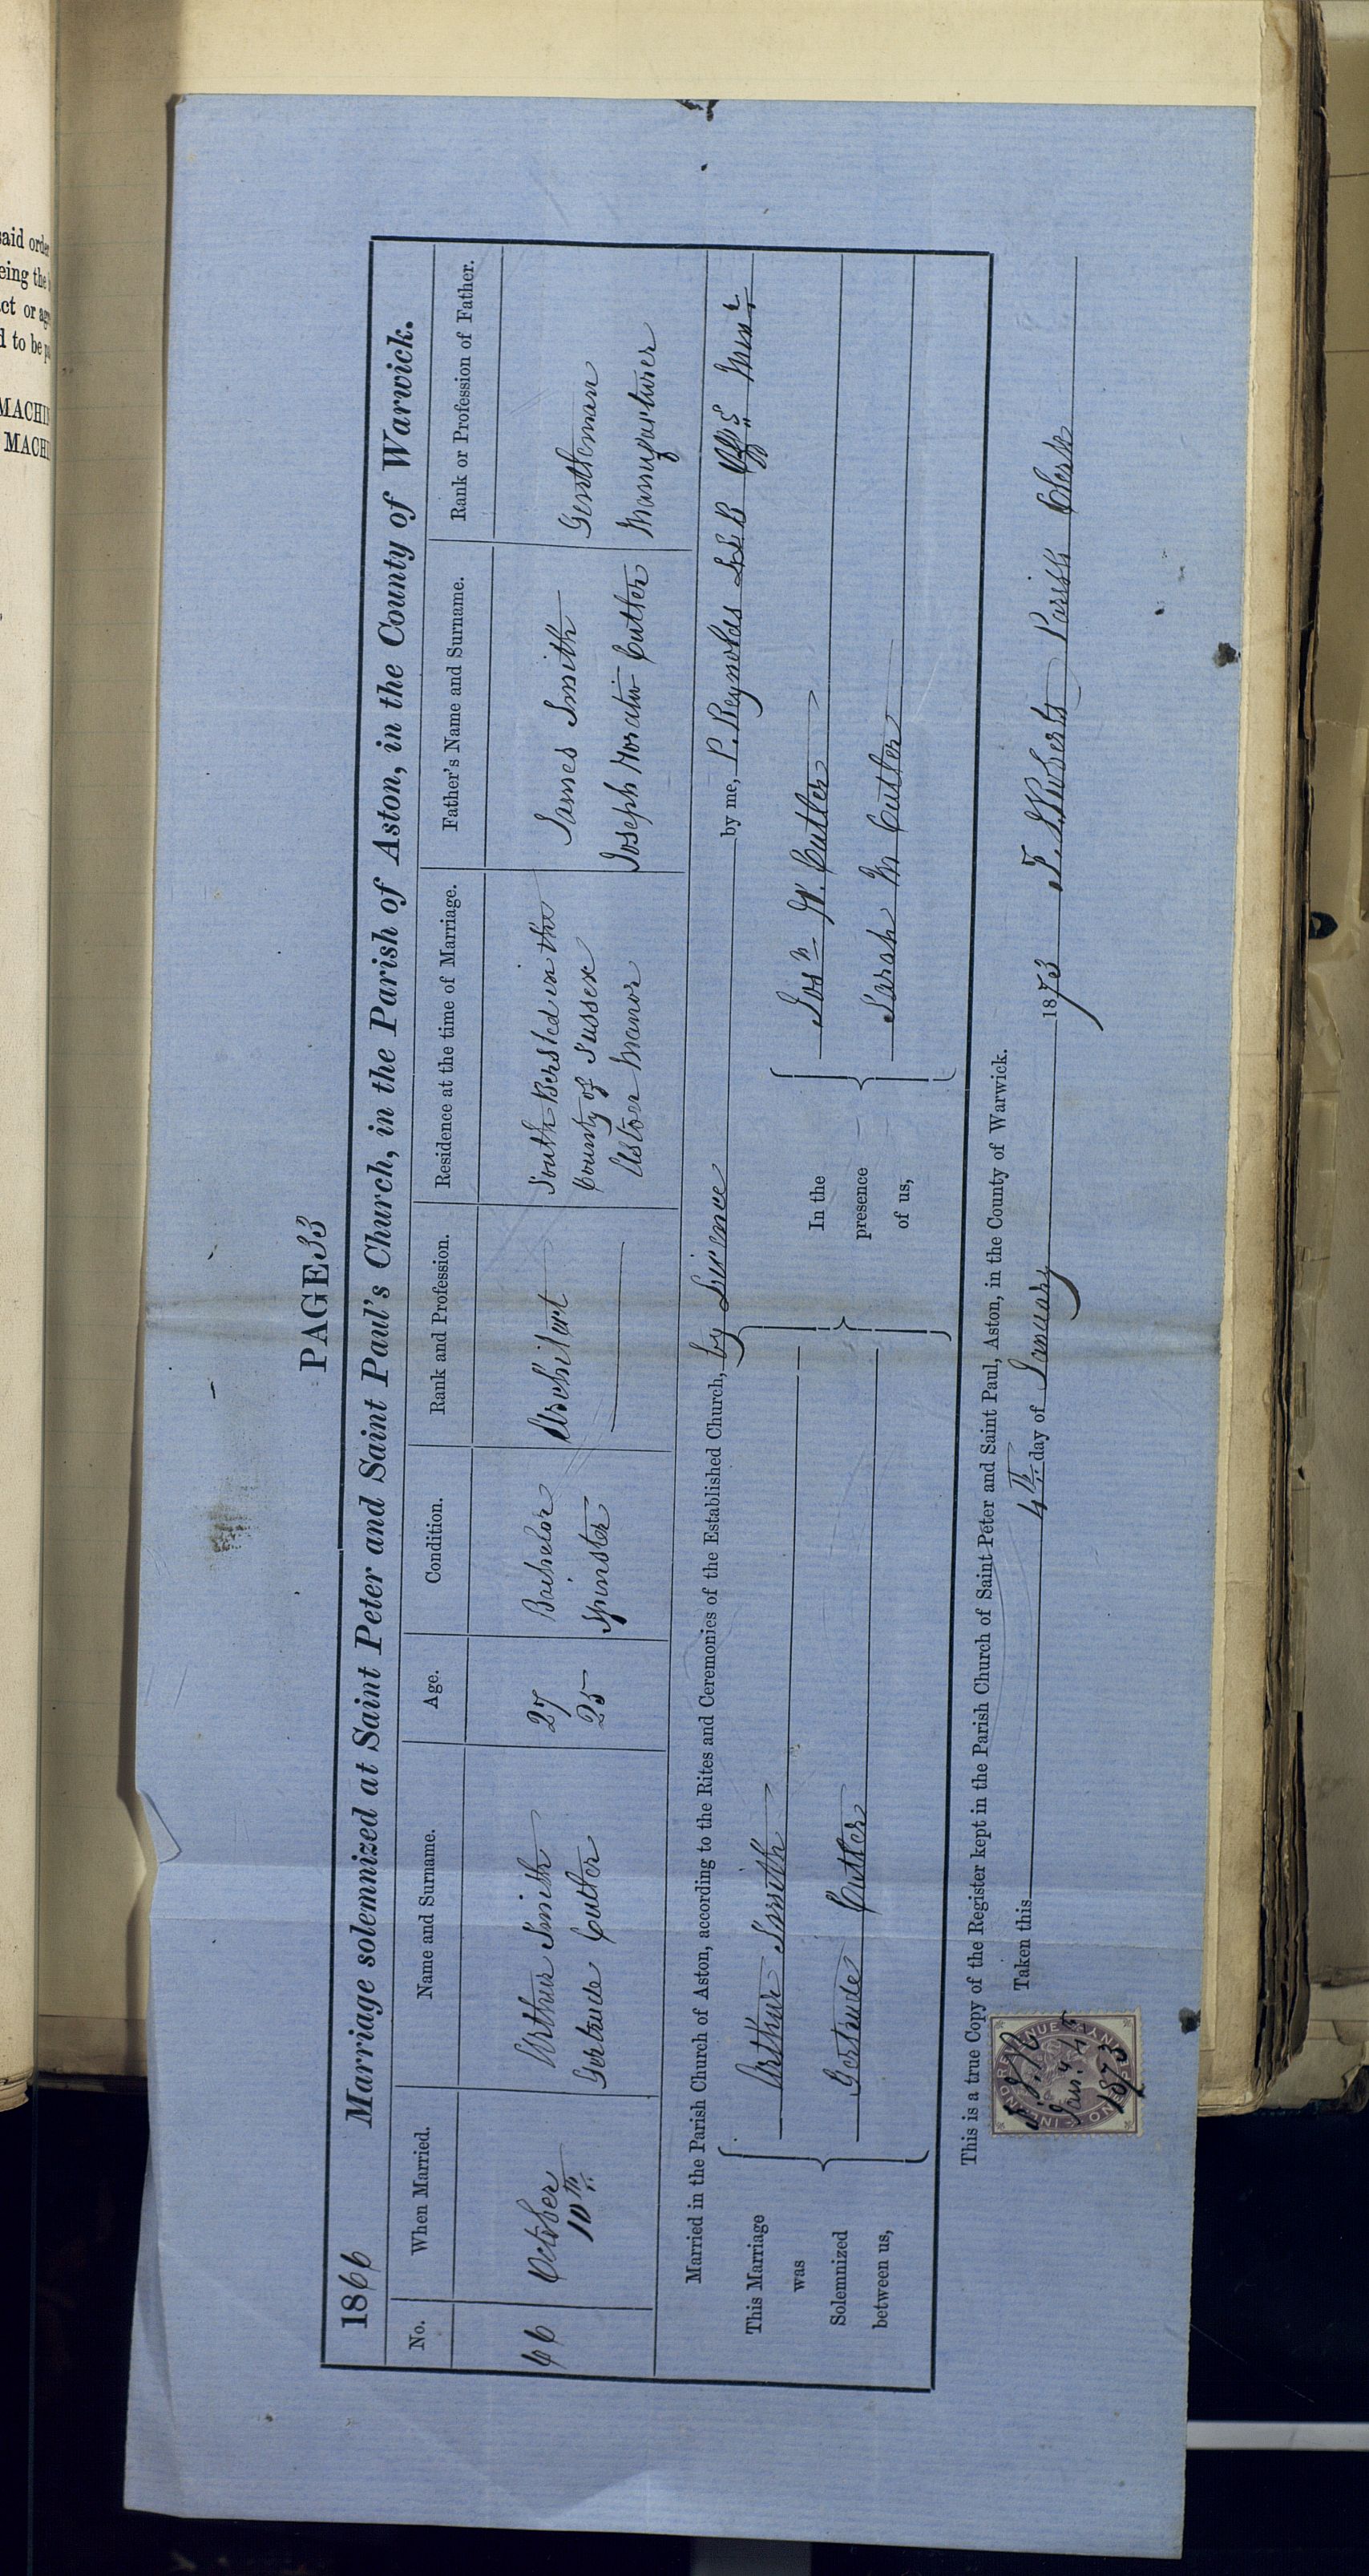 said orde
eing the
ct or ag
d to be p
MACHI
MACHI
PAGE 33
1866 Marriage solemnized at Saint Peter and Saint Paul's Church, in the Parish of Aston, in the County of Warwick.
No. When Married. Name and Surname. Age. Condition. Rank and Profession. Residence at the time of Marriage. Father's Name and Surname. Rank or Profession of Father.
66 October 10th Arthur Smith 27 Bachelor Architect South Bersted in the County of Sussex James Smith Gentleman
Gertrude Cutler 25 Spinster Aston Manor Joseph Horatio Cutler Manufacturer
Married in the Parish Church of Aston, according to the Rites and Ceremonies of the Established Church, by Licence by me, P. Reynolds LLB Offg Minr
This Marriage was Solemnized between us,
Arthur Smith
Gertrude Cutler
In the presence of us,
Josh H. Cutler
Sarah M Cutler
This is a true Copy of the Register kept in the Parish Church of Saint Peter and Saint Paul, Aston, in the County of Warwick.
Taken this 4th day of January 1873 Parish Clerk
INLAND REVENUE
ONE PENNY
Jan. 4th
1873